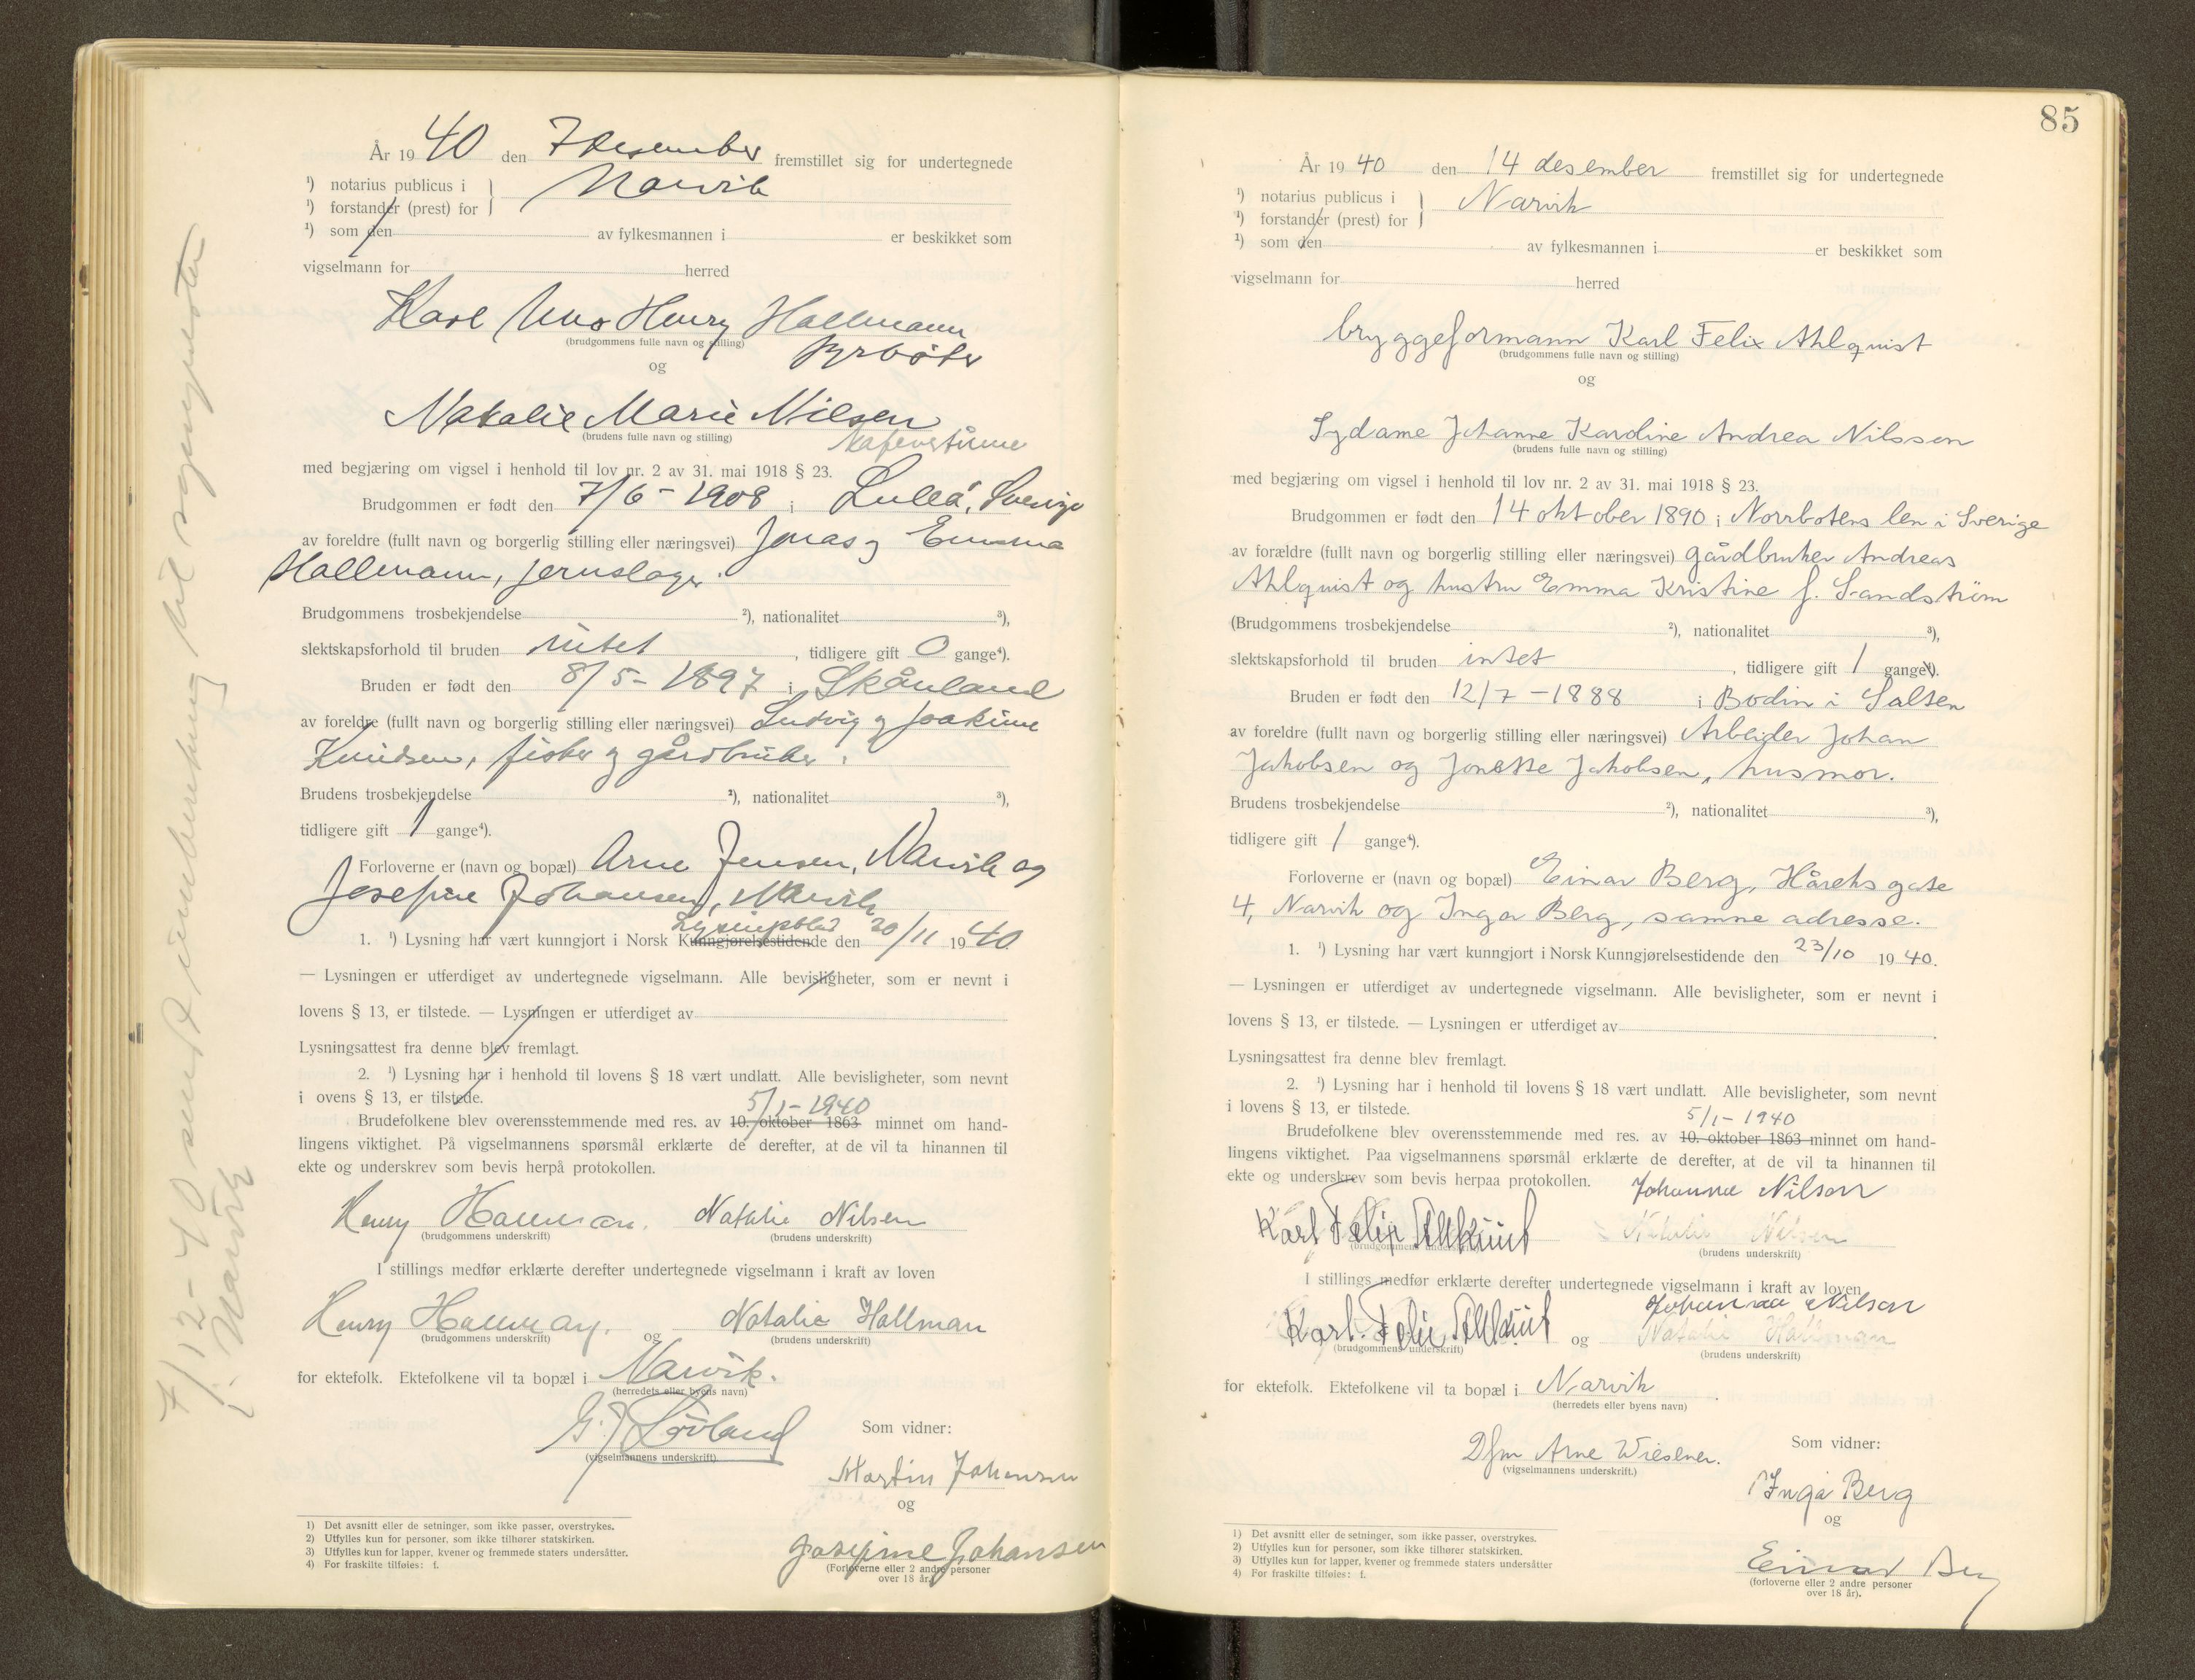 År 1940 den 7 desember fremstillet sig for undertegnede
¹) notarius publicus i
Narvik
¹) forstander (prest) for
¹) som den av fylkesmannen i er beskikket som
vigselmann for herred
Karl Uno Henry Hallmann
(brudgommens fulle navn og stilling)
fyrbøter
og
Natalie Marie Nilsen
(brudens fulle navn og stilling)
med begjæring om vigsel i henhold til lov nr. 2 av 31. mai 1918 § 23.
Brudgommen er født den 7/6 - 1908 i Luleå, Sverige
av foreldre (fullt navn og borgerlig stilling eller næringsvei) Jonas og Emma
Hallmann, jernslager.
Brudgommens trosbekjendelse ²), nationalitet ³),
slektskapsforhold til bruden intet, tidligere gift 0 gange⁴).
Bruden er født den 8/5 - 1897 i Skånland
av foreldre (fullt navn og borgerlig stilling eller næringsvei) Ludvig og Joakime
Knudsen, fisker og gårdbruker.
Brudens trosbekjendelse ²), nationalitet ³),
tidligere gift 1 gange⁴).
Forloverne er (navn og bopæl) Arne Jensen, Narvik og
Josefine Johansen, Narvik
Lysingsblad
1. ¹) Lysning har vært kunngjort i Norsk Kunngjørelsestidende den 20/11 1940
— Lysningen er utferdiget av undertegnede vigselmann. Alle bevisligheter, som er nevnt i
lovens § 13, er tilstede. — Lysningen er utferdiget av
Lysningsattest fra denne blev fremlagt.
2. ¹) Lysning har i henhold til lovens § 18 vært undlatt. Alle bevisligheter, som nevnt
i ovens § 13, er tilstede.
5/1 - 1940
Brudefolkene blev overensstemmende med res. av 10. oktober 1863 minnet om hand-
lingens viktighet. På vigselmannens spørsmål erklærte de derefter, at de vil ta hinannen til
ekte og underskrev som bevis herpå protokollen.
Henry Hallman. Natalie Nilsen
(brudgommens underskrift) (brudens underskrift)
I stillings medfør erklærte derefter undertegnede vigselmann i kraft av loven
Henry Hallman. og Natalie Hallman
(brudgommens underskrift) (brudens underskrift)
for ektefolk. Ektefolkene vil ta bopæl i Narvik.
(herredets eller byens navn)
G. J. Løvland
(vigselmannens underskrift)
Som vidner:
Martin Johansen
og
Josefine Johansen
(Forloverne eller 2 andre personer
over 18 år.)
1) Det avsnitt eller de setninger, som ikke passer, overstrykes.
2) Utfylles kun for personer, som ikke tilhører statskirken.
3) Utfylles kun for lapper, kvener og fremmede staters undersåtter.
4) For fraskilte tilføies: f.
7/12 - 40 sendt innberetning til sognepresten
i Narvik
85
År 1940 den 14 desember fremstillet sig for undertegnede
¹) notarius publicus i
Narvik
¹) forstander (prest) for
¹) som den av fylkesmannen i er beskikket som
vigselmann for herred
bryggeformann Karl Felix Ahlquist
(brudgommens fulle navn og stilling)
og
Sydame Johanne Karoline Andrea Nilssen
(brudens fulle navn og stilling)
med begjæring om vigsel i henhold til lov nr. 2 av 31. mai 1918 § 23.
Brudgommen er født den 14 oktober 1890 i Norrbotens len i Sverige
av forældre (fullt navn og borgerlig stilling eller næringsvei) gårdbruker Andreas
Ahlquist og hustru Emma Kristine f. Sandstrøm
(Brudgommens trosbekjendelse ²), nationalitet ³),
slektskapsforhold til bruden intet, tidligere gift 1 gange⁴).
Bruden er født den 12/7 - 1888 i Bodin i Salten
av foreldre (fullt navn og borgerlig stilling eller næringsvei) Arbeider Johan
Jakobsen og Jonette Jakobsen, husmor.
Brudens trosbekjendelse ²), nationalitet ³),
tidligere gift 1 gange⁴).
Forloverne er (navn og bopæl) Einar Berg, Håreks gate
4, Narvik og Inga Berg, samme adresse.
1. ¹) Lysning har vært kunngjort i Norsk Kunngjørelsestidende den 23/10 1940.
— Lysningen er utferdiget av undertegnede vigselmann. Alle bevisligheter, som er nevnt i
lovens § 13, er tilstede. — Lysningen er utferdiget av
Lysningsattest fra denne blev fremlagt.
2. ¹) Lysning har i henhold til lovens § 18 vært undlatt. Alle bevisligheter, som nevnt
i lovens § 13, er tilstede.
5/1 - 1940
Brudefolkene blev overensstemmende med res. av 10. oktober 1863 minnet om hand-
lingens viktighet. Paa vigselmannens spørsmål erklærte de derefter, at de vil ta hinannen til
ekte og underskrev som bevis herpaa protokollen.
Johanne Nilsen
Karl Felix Ahlkuist Natalie Nilsen
(brudgommens underskrift) (brudens underskrift)
I stillings medfør erklærte derefter undertegnede vigselmann i kraft av loven
Johanna Nilsen
Karl Felix Ahlkuist og Natalie Hallman
(brudgommens underskrift) (brudens underskrift)
for ektefolk. Ektefolkene vil ta bopæl i Narvik.
(herredets eller byens navn)
Dfm Arne Wiesener.
(vigselmannens underskrift.)
Som vidner:
Inga Berg
og
Einar Berg
(forloverne eller 2 andre personer
over 18 år).
1) Det avsnitt eller de setninger, som ikke passer, overstrykes.
2) Utfylles kun for personer, som ikke tilhører statskirken.
3) Utfylles kun for lapper, kvener og fremmede staters undersåtter
4) For fraskilte tilføies: f.